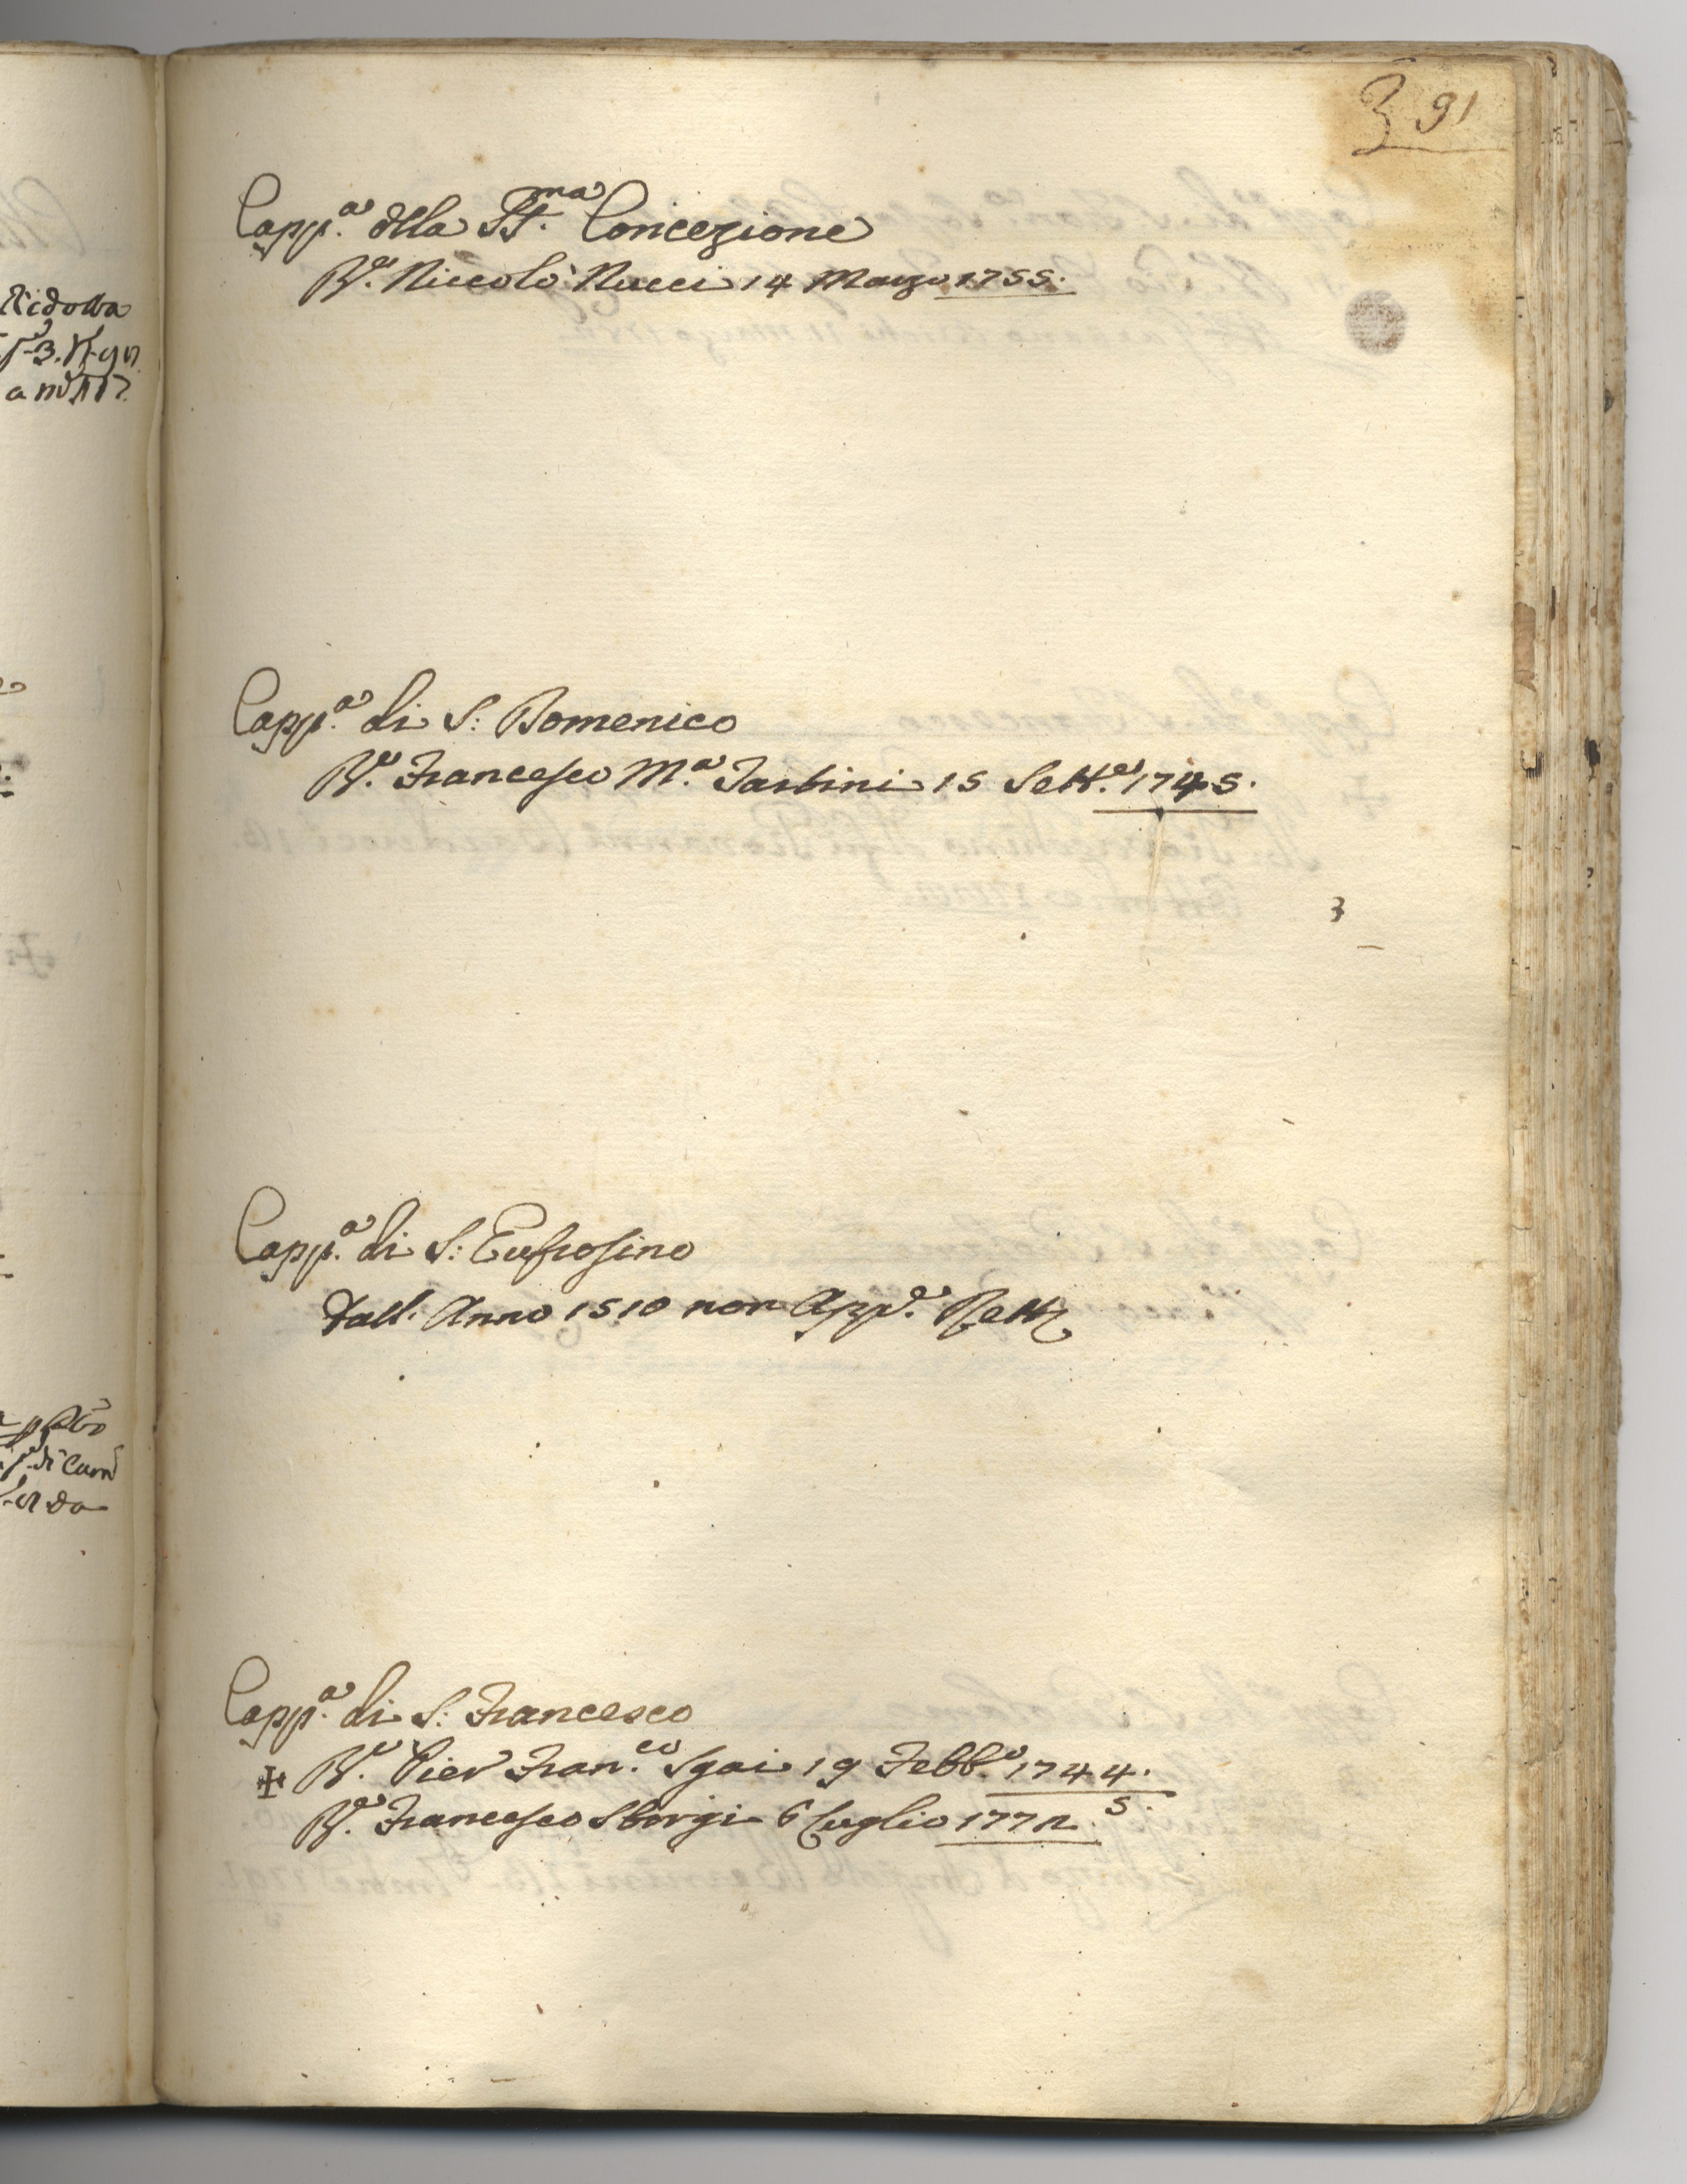 391
Capp.a della SS.ma Concezione
R.e Niccolò Nucci 14 Marzo 1755.
Capp.a di S: Domenico
R.e Francesco M.a Tarbini 15 Sett.e 1745.
Capp.a di S: Eufrosino
Dall. Anno 1510 non App.e
Capp.a di S: Francesco
R.e Pier Fran.co Sgai 19 Febb.o 1744.
R.e Francesco Sborgi 6 Luglio 177
Ridolva